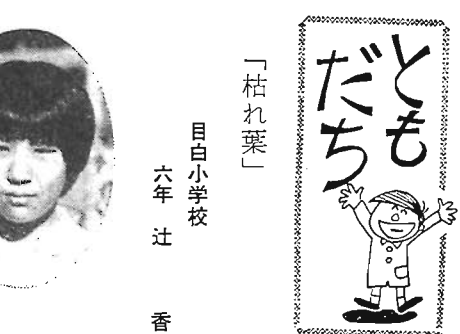 ともだち
「枯れ葉」
目白小学校
六年 辻 香